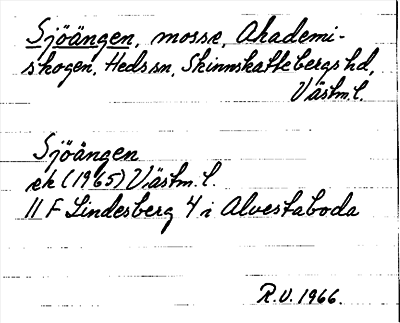 Sjöängen, mosse, Akademi-
skogen, Heds sn, Skinnskattebergs hd,
Västm.l.
Sjöängen
ek (1965) Västm.l.
11 F Lindesberg 4 i Alvestaboda
R.V. 1966.